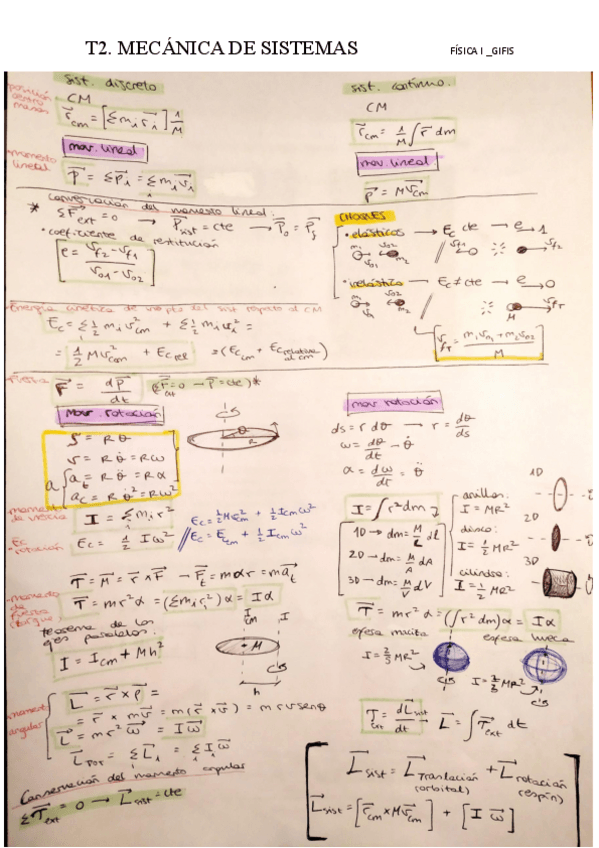 T2. MECÁNICA DE SISTEMAS
FÍSICA I _GIFIS
posición centro masas
sist. discreto
CM
r⃗cm = [Σ mᵢ r⃗ᵢ] 1/M
mov. lineal
momento lineal
p⃗ = Σp⃗ᵢ = Σ mᵢ v⃗ᵢ
sist. continuo.
CM
r⃗cm = 1/M ∫ r⃗ dm
mov. lineal
p⃗ = M v⃗cm
* Conservación del momento lineal:
ΣF⃗ext = 0 → P⃗sist = cte → P⃗₀ = P⃗f
• coeficiente de restitución
e = (vf2 - vf1) / (v01 - v02)
CHOQUES
• elásticos → Ec cte → e → 1
m1 v01 v02 m2 // vf1 vf2
• inelástico → Ec ≠ cte → e → 0
m1 m2 // M vfT
vfT = / M
- Energía cinética de sist respeto al CM
Ec = Σ 1/2 mᵢ v²cm + Σ 1/2 mᵢ vᵢ² =
= 1/2 M v²cm + Ec rel = (Ec cm + Ec relativa al cm)
- Fuerza
F⃗ = dp⃗/dt (ΣF⃗ext = 0 → p⃗ = cte)*
Mov. rotación
S = R θ
v = R θ̇ = R ω
a { at = R θ̈ = R α
ac = R θ̇² = R ω²
θ R
mov rotación
ds = r dθ → r = dθ/ds
ω = dθ/dt - θ̇
α = dω/dt = θ̈
- momento de inercia
I = Σ mᵢ rᵢ²
- Ec rotación
Ec = 1/2 I ω²
// Ec = 1/2 M v²cm + 1/2 Icm ω²
Ec = Ecm + 1/2 Icm ω²
I = ∫ r² dm
1D → dm = M/L dl
2D → dm = M/A dA
3D → dm = M/V dV
anillos: I = MR²
disco: I = 1/2 MR²
cilindro: I = 1/2 MR²
1D
2D
3D
- momento de fuerza (torque)
τ⃗ = M⃗ = r⃗ ∧ F⃗ → F⃗t = mαr = m a⃗t
τ⃗ = mr²α = (Σ mᵢ rᵢ²)α = Iα
τ⃗ = mr²α = (∫ r² dm)α = Iα
teorema de los ejes paralelos:
I = Icm + Mh²
I cm I
M
h
esfera maciza
I = 2/3 MR²
esfera hueca
I = 2/3 MR²
- momento angular
L⃗ = r⃗ × p⃗ =
= r⃗ × mv⃗ = m(r⃗ × v⃗) = m r v senθ
L⃗ = mr² ω⃗ = I ω⃗
L⃗TOT = Σ L⃗ᵢ = Σ Iᵢ ω⃗
τ⃗ext = dL⃗sist/dt → L⃗ = ∫ τ⃗ext dt
Conservación del momento angular
Στ⃗ext = 0 → L⃗sist = cte
L⃗sist = L⃗Translación (orbital) + L⃗rotación (espín)
L⃗sist = [r⃗cm × M v⃗cm] + [I ω⃗]